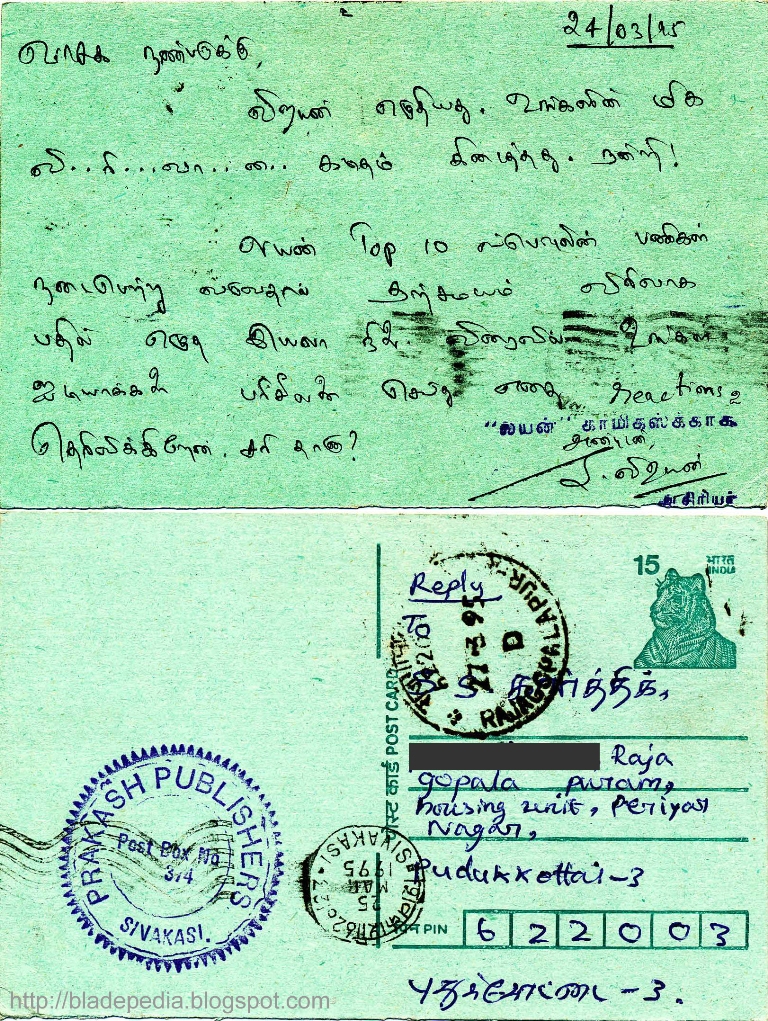 24/03/95
வாசக நண்பருக்கு,
விஜயன் எழுதியது. உங்களின் மிக
வி..ரி...வா..ன.. கடிதம் கிடைத்தது. நன்றி!
லயன் Top 10 ஸ்பெஷலின் பணிகள்
நடைபெற்று வருவதால் தற்சமயம் விரிவாக
பதில் எழுத இயலா நிலை. விரைவில் உங்கள்
ஐடியாக்கள் பரிசீலனை செய்து எனது reactions ஐ
தெரிவிக்கிறேன். சரி தானா?
"லயன்" காமிக்ஸ்க்காக
அன்புடன்,
S. விஜயன்
ஆசிரியர்
15 भारत INDIA
Reply
To
27-3-95
D
RAJAGOPALAPUR
S கார்த்திக்,
पोस्ट कार्ड POST CARD
Raja
gopala puram,
housing unit, Periyar
Nagar,
Pudukkottai-3
पिन PIN 622003
புதுக்கோட்டை-3.
PRAKASH PUBLISHERS
Post Box No
314
SIVAKASI.
SIVAKASI
25 MAR 1995
http://bladepedia.blogspot.com